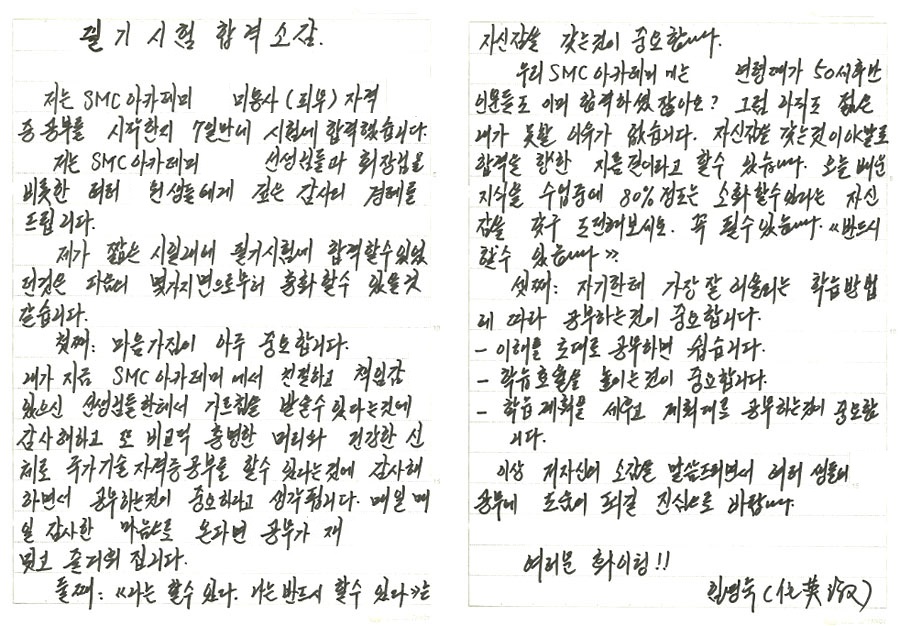 필기시험 합격소감.
저는 SMC아카데미 미용사(피부)자격
증 공부를 시작한지 7일만에 시험에 합격했습니다.
저는 SMC아카데미 선생님들과 회장님을
비롯한 여러 원생들에게 깊은 감사의 경례를
드립니다.
제가 짧은 시일내에 필기시험에 합격할수있었
던것은 다음의 몇가지면으로부터 종화할수 있을것
같습니다.
첫째: 마음가짐이 아주 중요합니다.
내가 지금 SMC아카데미에서 친절하고 책임감
있으신 선생님들한테서 가르침을 받을수 있다는것에
감사해하고 또 비교적 총명한 머리와 건강한 신
체로 국가기술자격증공부를 할수 있다는것에 감사해
하면서 공부하는것이 중요하다고 생각됩니다. 매일매
일 감사한 마음으로 온다면 공부가 재
밌고 즐거워 집니다.
둘째: 《나는 할수 있다. 나는 반드시 할수 있다》는
자신감을 갖는것이 중요합니다.
우리 SMC아카데미에는 연령대가 50세후반
인분들도 이미 합격하셨잖아요? 그럼 아직도 젊은
내가 못할 이유가 없습니다. 자신감을 갖는것이야말로
합격을 향한 지름길이라고 할수 있습니다. 오늘 배운
지식을 수업중에 80%정도는 소화할수있다는 자신
감을 갖구 도전해보세요. 꼭 될수있습니다. 《반드시
할수 있습니다》
셋째: 자기한테 가장 잘 어울리는 학습방법
에 따라 공부하는것이 중요합니다.
- 이해를 토대로 공부하면 쉽습니다.
- 학습효율을 높이는것이 중요합니다.
- 학습계획을 세우고 계획대로 공부하는것이 중요합
니다.
이상 저자신의 소감을 말씀드리면서 여러 샘들의
공부에 도움이 되길 진심으로 바랍니다.
여러분 화이팅!!